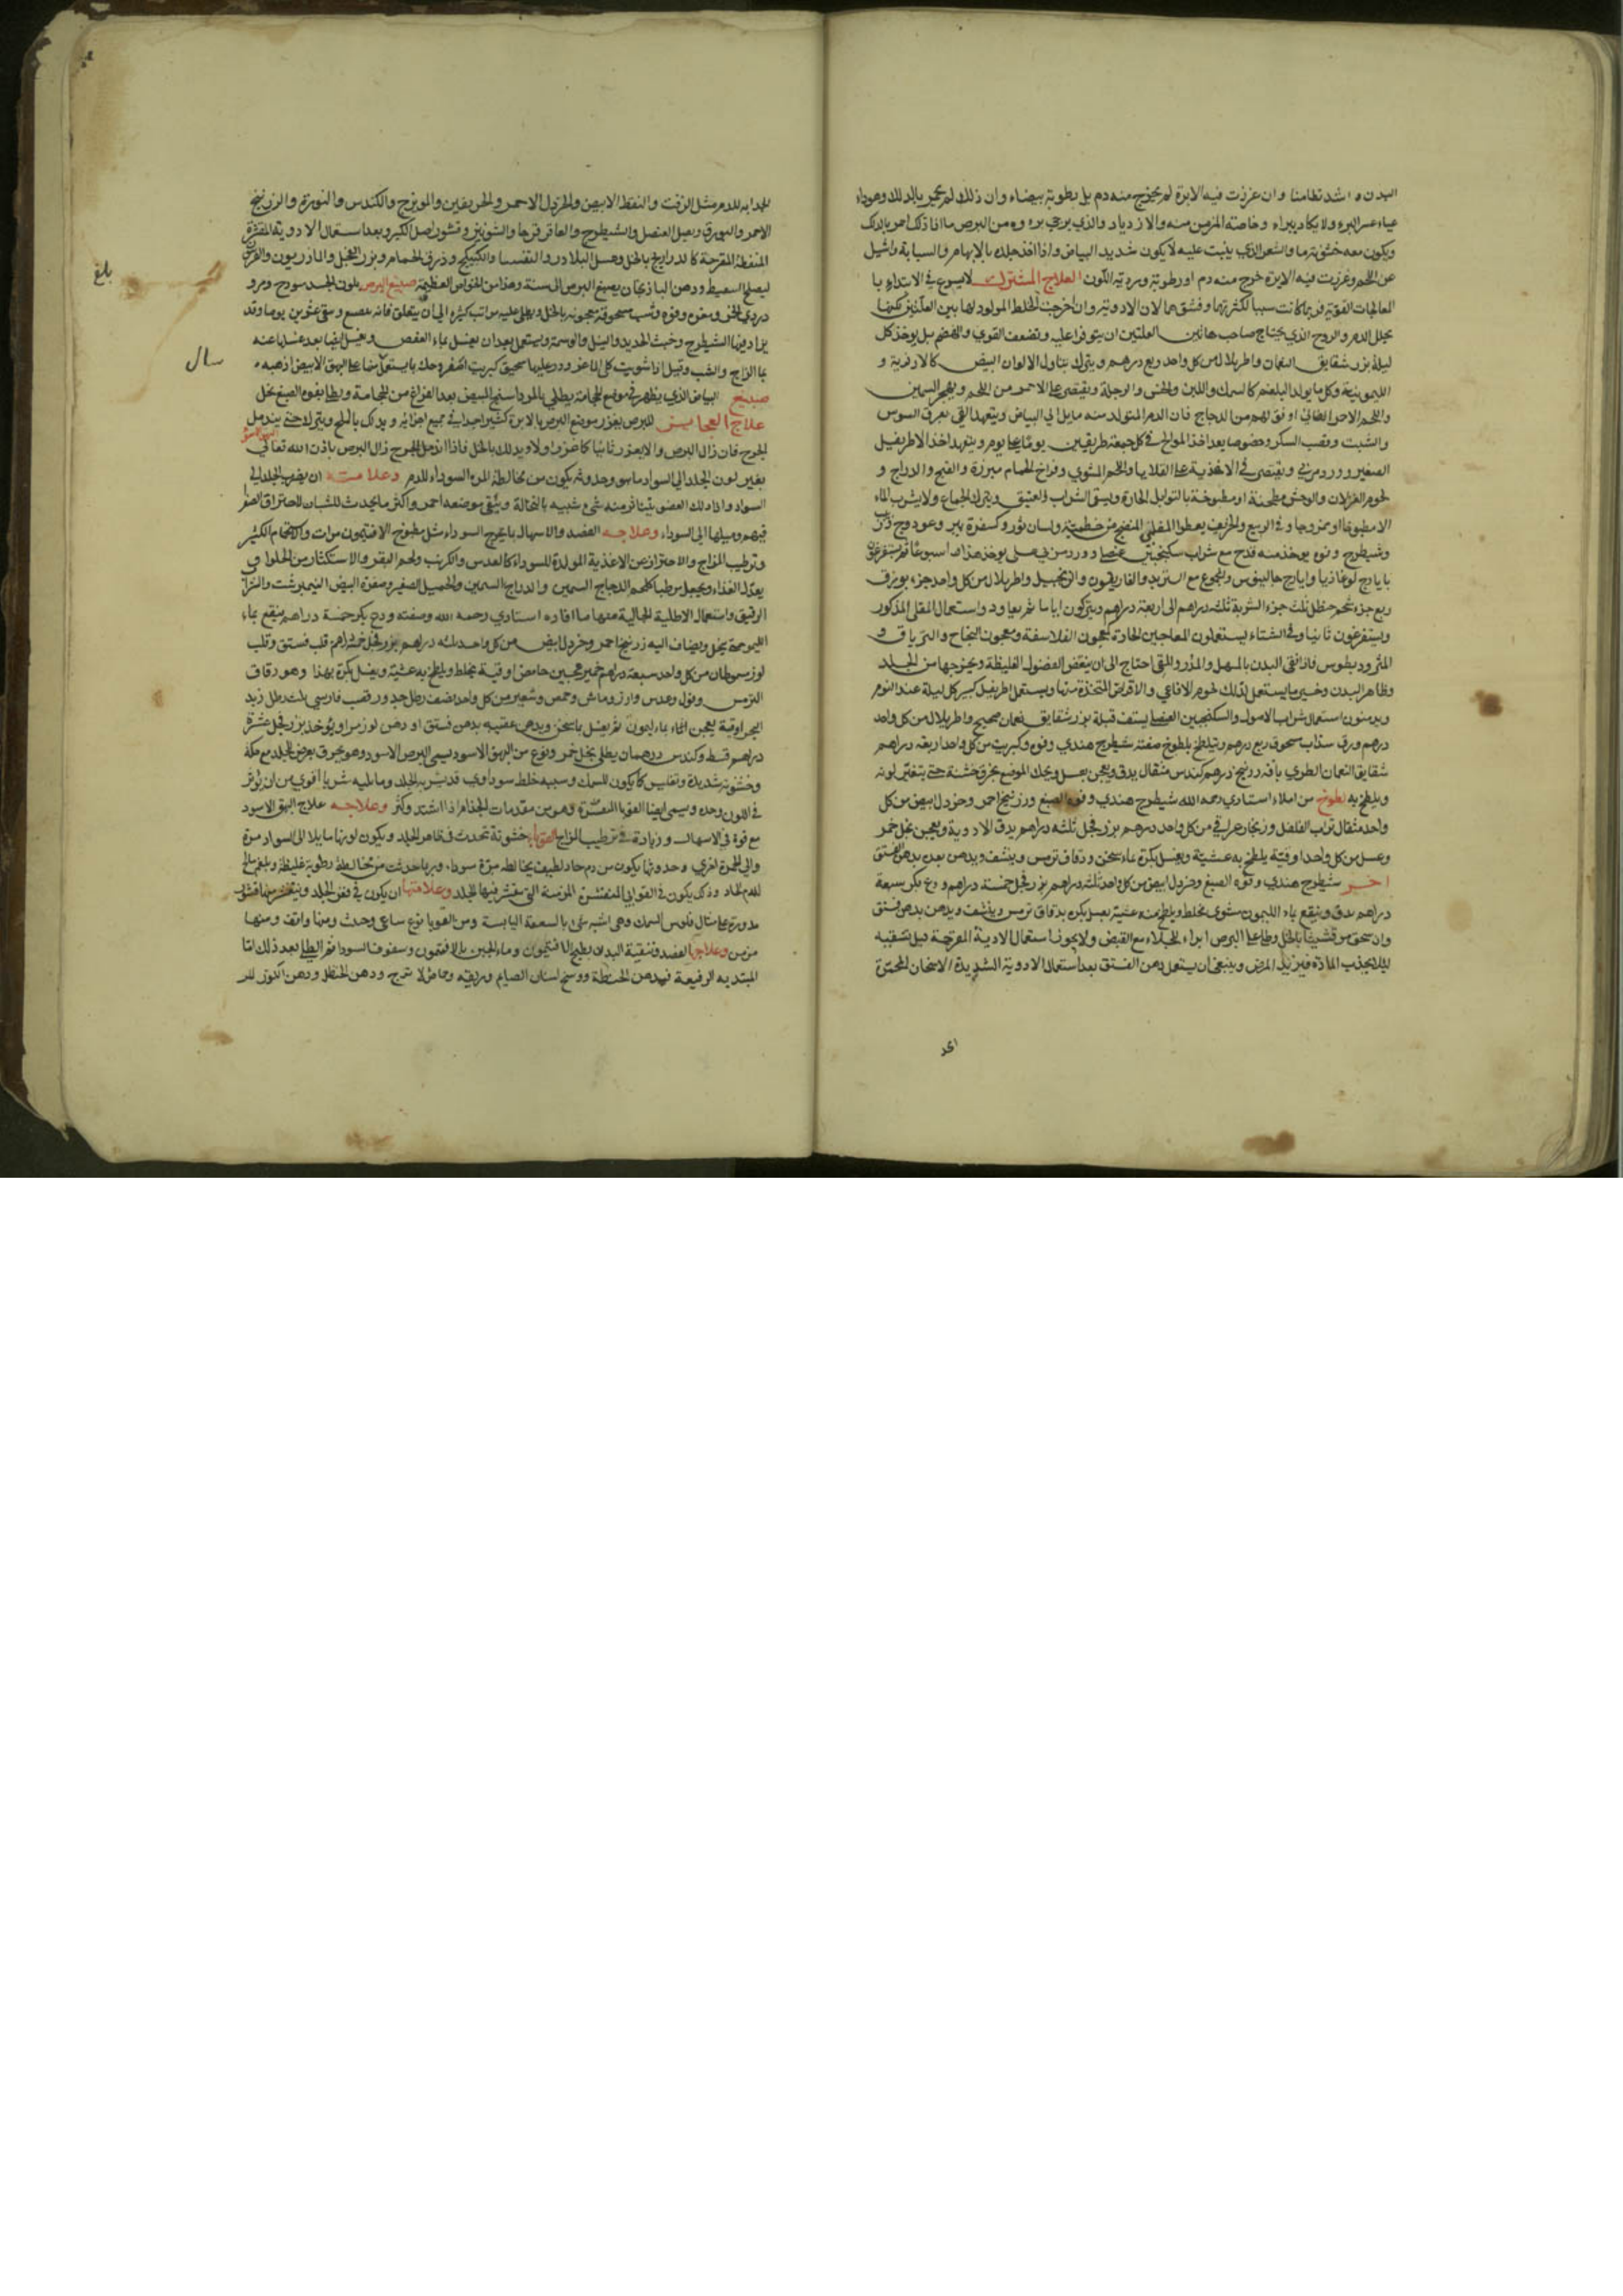 البدن واشد تطامنا وان غرزت فيه الابرة لم يخرج منه دم بل رطوبة بيضاء وان ذلك لم يحمر بالدلك وهوداء
عياء عسر البرء ولا يكاد يبراء وخاصة المزمن منه والازدياد والذي يرجى برءه من البرص ما اذا ذلك احمر بالدلك
ويكون معه خشونة ما والشعر الذي ينبت عليه لا يكون شديد البياض واذا اخذ جلده بالابهام والسبابة واشيل
عن اللحم وغرزت فيه الابرة خرج منه دم او رطوبة وردية اللون العلاج المشترك لا يسوغ في الابتداء با
المعالجات القوية فربما كانت سببا لكثرتهما وفشوهما لان الادوية وان اخرجت الخلط المولد لهما بين العلتين لكنها
يحلل الدم والروح الذي يحتاج صاحب هاتين العلتين ان يتوفرا عليه وتضعف القوي والهضم بل يوخذ كل
ليلة بزر شقايق النعمان واطريلال من كل واحد ربع درهم ويترك بتناول الالوان البيض كالارزية و
الليمونية وكل ما يولد البلغم كالسمك واللبن والخس والرجلة ويقتصر علي الاحمر من اللحم ويهجر السمين
واللحم الاحمر الضاني اوفق لهم من الدجاج فان الدم المتولد منه مايل الي البياض ويتعهد القي بعرق السوس
والشبت وقصب السكر وخصوصا بعد اخذ الموالح في كل جمعة طريقين يوما علي يوم ويتعهد اخذ الاطريفل
الصغير وورد مربي ويقتصر في الاغذية علي القلايا واللحم المشوي وفراخ الحمام مبزرة والقبج والدراج و
لحوم الغزلان والوحش مطجنة او مطبوخة بالتوابل الحارة ويسقي الشراب العتيق ويترك الجماع ولا يشرب الماء
الا مطبوخا او ممزوجا وفي الربيع والخريف يعطوا المغلي المنضج من خطمية ولسان ثور وكسفرة بير وعود وج
وشيطرج وفوه يوخذ منه قدح مع شراب سكنجبين عنصل وورد مربي عسلي يوخذ هذا اسبوعا ثم يستفرغون
بايارج لوغاذيا وايارج جالينوس والجوع مع التربد والغاريقون والزنجبيل واطريلال من كل واحد جزء بورق
ربع جزء شحم حنظل ثلث جزء الشربة ثلثة دراهم الى اربعة دراهم ويتركون اياما ثم يعاود واستعمال المغلي المذكور
ويستفرغون ثانيا وفي الشتاء يستعملون المعاجين الحارة كمعجون الفلاسفة ومعجون النجاح والترياق و
المثروديطوس فاذا نقي البدن بالمسهل والمدر والمقي احتاج الى ان ينقض الفضول الغليظة ويخرجها من الجلد
وظاهر البدن وخير ما يستعمل لذلك لحوم الافاعي والاقراص المتخذة منها ويستعمل اطريفل كبير كل ليلة عند النوم
ويدمنون استعمال شراب الاصول والسكنجبين العنصلي يستف قبله بزر شقايق نعمان صحيح واطريلال من كل واحد
درهم ورق سذاب مسحوق ربع درهم ويتلطخ بلطوخ صفته شيطرج هندي وفوه وكبريت من كل واحد اربعة دراهم
شقايق النعمان الطري باقة زرنيخ درهم كندس مثقال يدق ويعجن بعسل ويحك الموضع بخرقة خشنة حتي يتغير لونه
ويلطخ به لطوخ من املاء استاذي رحمه الله شيطرج هندي وفوه الصبغ وزرنيخ احمر وخردل ابيض من كل
واحد مثقال تراب الفلفل وزنجار عراقي من كل واحد درهم بزر فجل ثلثة دراهم يدق الادوية ويعجن بخل خمر
وعسل من كل واحد اوقية يلطخ به عشية ويغسل بكرة بماء سخن ودقاق ترمس وينشف ويدهن بعده بدهن الفستق
اخر شيطرج هندي وفوه الصبغ وخردل ابيض من كل واحد ثلثة دراهم بزر فجل خمسة دراهم ودع بكر سبعة
دراهم يدق وينقع بماء الليمون مشوي يخلط ويلطخ منه عشية بعسل بكره بدقاق ترمس وينشف ويدهن بدهن فستق
وان سحق مرقشيثا بالخل وطلي علي البرص ابراء للجلاء مع القبض ولا يجوز استعمال الادية المقرحة قبل تنقيه
ليلا يجذب المادة فيزيد المرض وينبغي ان يستعمل دهن الفستق بعد استعمال الادوية الشديدة الاسخان المحمرة
الجد
الجدابه للدم مثل الزفت والنفط الابيض والخردل الاحمر والخربقين والمويزج والكندس والنورة والزرنيخ
الاحمر والبورق وبصل العنصل والشيطرج والعاقرقرحا والشونيز وقشور اصل الكبر وبعد استعمال الادوية المقشرة
المنفطة المقرحة كالذراريح بالخل وعسل البلادر والتفسيا والكبيكج وذرق الحمام وبزر الفجل والمازريون والفربيون
ودهن الباذنجان يصبغ البرص الى سنة وهذا من الخواص العظيمة صبيغ البرص بلون الجسد
وفوه وشب مسحوقة معجونة بالخل ويطلي عليه مرات كثيرة الي ان يتعلق فانه يصبغ ويبقي عشرين يوما وقد
يزاد فيها الشيطرج وخبث الحديد والنيل والوسمة ويستعمل بعد ان يغسل بماء العفص وبغسل ايضا بعد غسلها عنه
بما الزاج والشب وقيل اذا شويت كلي الماعز وذر عليها سحيق كبريت اصفر وحك بما يستعمل منها علي البهق الابيض اذهبه
صبيغ البياض الذي يظهر في موضع الحجامة يطلي بالمرداسنج المبيض بعد الفراغ من الحجامة ويطلي بفوه الصبغ بخل
علاج العجايز للبرص يغرز موضع البرص بالابرة كثيرا جدا في جميع اجزائه ويدلك بالملح ويترك حتي يندمل
الجرح فان زال البرص والا يغرز ثانيا كما غرز اولا ويدلك بالخل فاذا اندمل الجرح زال البرص باذن الله تعالي
بغير لون الجلد الي السواد ما هو وحدوثه يكون من مخالطة المره السوداء للدم وعلامته ان يضرب الجلد الي
السواد واذا دلك العضو يتناثر منه شيء شبيه بالنخالة ويبقي موضعه احمر واكثر ما يحدث للشبان لاحتراق الصفرا
فيهم وميلها الى السوداء وعلاجه الفصد والاسهال بما يخرج السوداء مثل مطبوخ الافتيمون مرات والاستحمام الكثير
وترطيب المزاج والاحتراز من الاغذية المولدة للسوداء كالعدس والكرنب ولحم البقر والاستكثار من الحلوا و
يعدل الغذاء ويجعل مرطبا كلحم الدجاج السمين والدراج السمين والحميل الصغير وصفرة البيض النيمبرشت والشراب
الرقيق واستعمال الاطلية الجالية منها ما افاده استاذي رحمه الله وصفته ودع بكر خمسة دراهم ينقع بماء
الليمو جمعة بخل ويضاف اليه زرنيخ احمر وخردل ابيض من كل واحد ثلثه دراهم بزر فجل خمسة دراهم قلب فستق وقلب
لوز من كل واحد سبعة دراهم خمير عجين حامض اوقية يخلط ويلطخ به عشية ويغسل بكرة بهذا وهو دقاق
الترمس وفول وعدس وارز وماش وحمص وشعير من كل واحد نصف رطل جيد ورق قصب فارسي ثلث رطل زبد
البحر اوقية يعجن الماء بماء ليمون ثم يغسل بما سخن ويدهن عقيبه بدهن فستق او دهن لوز مر او يوخذ بزر فجل عشرة
دراهم قسط وكندس درهمان يطلي بخل خمر ونوع من البهق الاسود يسمي البرص الاسود وهو يعرض للجلد مع حكة
وخشونة شديدة وتفليس كما يكون للسمك وسببه خلط سوداوي قد يشربه الجلد وما يليه شربا اقوي من ان يؤثر
في اللون وحده ويسمي ايضا القوبا المتقشرة وهو من مقدمات الجذام اذا اشتد وكثر وعلاجه علاج البهق الاسود
مع قوة في الاسهال وزيادة في ترطيب المزاج القوباء خشونة تحدث في ظاهر الجلد ويكون لونها مايلا الى السواد مرة
والى الحمرة اخري وحدوثها يكون من دم حاد لطيف يخالطه مرة سوداء وربما حدثت من مخالطة رطوبة غليظة وبلغم مالح
للدم الحاد وذلك يكون في القوابي المتقشرة المزمنة التي يتقشر فيها الجلد وعلامتها ان يكون في نفس الجلد ويتقشر منها قشور
مدورة علي مثال فلوس السمك وهي اشبه شي بالسعفة اليابسة ومن القوبا نوع ساعي وحدث ومنها واقف ومنها
مزمن وعلاجها الفصد وتنقية البدن بطبيخ الافتيمون وماء الجبن بالافتيمون وسفوف السودا ثم الطلي بعد ذلك اما
المبتديه الرفيعة فبدهن الحنطة ووسخ اسنان الصايم وريقه وحماض الاترج ودهن الحنظل ودهن اللوز المر
بلغ